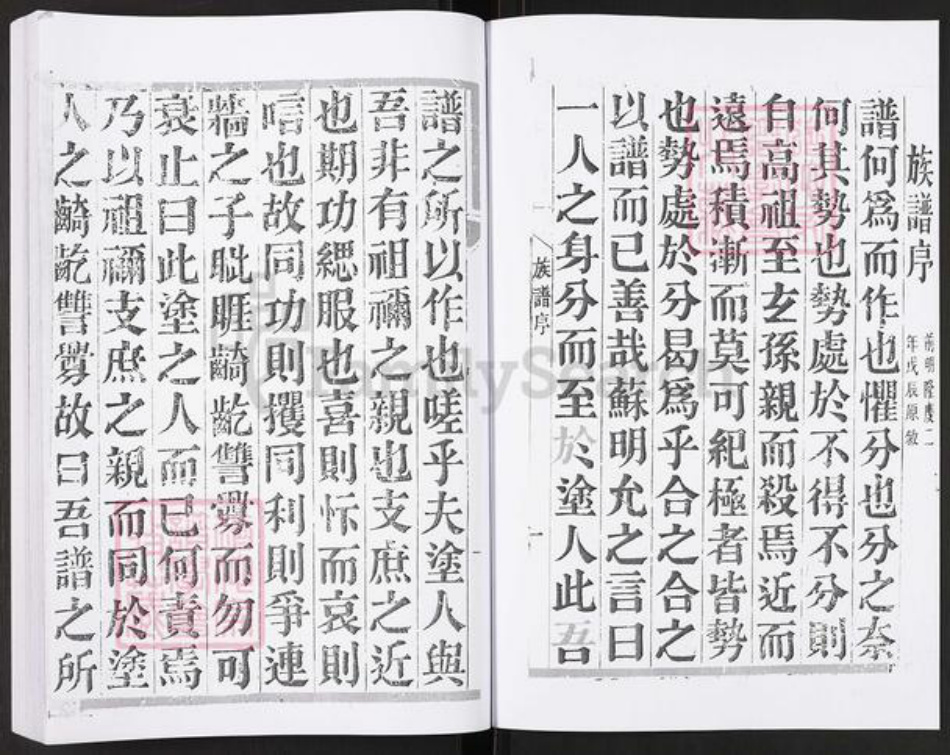 族譜序
前明隆慶二
年戊辰原敘
譜何爲而作也懼分也分之柰
何其勢也勢處於不得不分則
自高祖至玄孫親而殺焉近而
遠焉積漸而莫可紀極者皆勢
也勢處於分曷爲乎合之合之
以譜而已善哉蘇明允之言曰
一人之身分而至於塗人此吾
族譜序
一
譜之所以作也嗟乎夫塗人與
吾非有祖禰之親也支庶之近
也期功緦服也喜則忻而哀則
唁也故同功則攫同利則爭連
牆之子眦睚齮齕讐釁而勿可
衰止曰此塗之人而已何責焉
乃以祖禰支庶之親而同於塗
人之齮齕讐釁故曰吾譜之所
FamilySearch